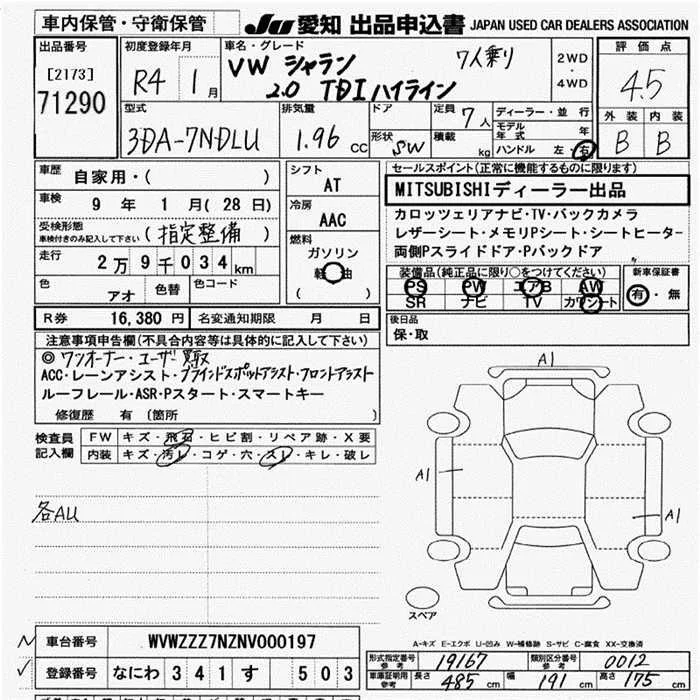 車内保管・守衛保管
JU 愛知 出品申込書 JAPAN USED CAR DEALERS ASSOCIATION
出品番号
[2173]
71290
初度登録年月
R4 1 月
車名・グレード
VW シャラン 7人乗り
2.0 TDI ハイライン
2WD
・
4WD
評価点
4.5
外装 内装
B B
型式
3DA-7NDLU
排気量
1.96 CC
ドア
形状 SW
定員 7 人
積載 kg
ディーラー・並行
モデル年式 年
ハンドル 左・右
車歴 自家用・( )
車検 9 年 1 月 (28 日)
受検形態
車検付きのみ記入して下さい (指定整備)
走行 2万9千034km
色 アオ 色替 色コード
R券 16,380 円 名変通知期限 月 日
シフト
AT
冷房
AAC
燃料
ガソリン
軽油
( )
セールスポイント(正常に機能するものに限ります)
MITSUBISHIディーラー出品
カロッツェリアナビ・TV・バックカメラ
レザーシート・メモリPシート・シートヒーター
両側Pスライドドア・Pバックドア
装備品(純正品に限り○をつけてください)
PS PW エアB AW
SR ナビ TV カワシート
新車保証書
有・無
後日品
保・取
注意事項申告欄(不具合内容等は具体的に記入して下さい)
◎ワンオーナー・ユーザー買取
ACC・レーンアシスト・ブラインドスポットアシスト・フロントアシスト
ルーフレール・ASR・Pスタート・スマートキー
修復歴 有 (箇所 )
検査員記入欄
FW キズ・飛石・ヒビ割・リペア跡・X要
内装 キズ・汚レ・コゲ・穴・スレ・キレ・破レ
各AU
A1
A1
A1
スペア
A-キズ E-エクボ U-凹み W-補修跡 S-サビ C-腐食 XX-交換済
車台番号 WVWZZZ7NZNV000197
登録番号 なにわ 341 す 503
形式指定番号 参考 19167 類別区分番号 参考 0012
車庫証明用 参考 長さ 485 cm 幅 191 cm 高さ 175 cm